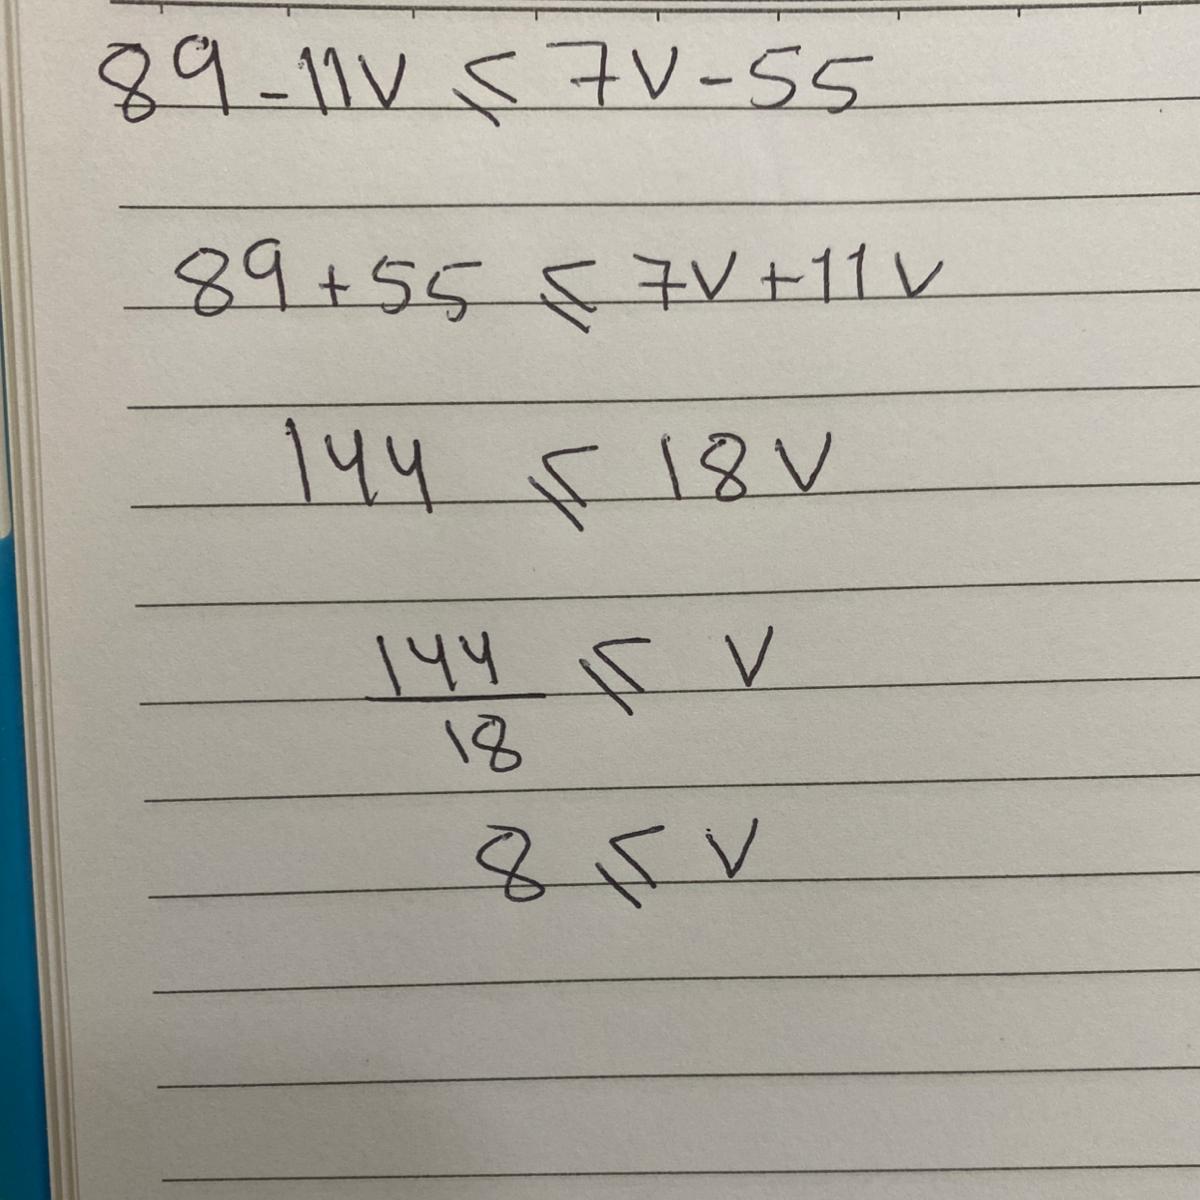 89 - 11v ⩽ 7v - 55
89 + 55 ⩽ 7v + 11v
144 ⩽ 18v
144/18 ⩽ v
8 ⩽ v